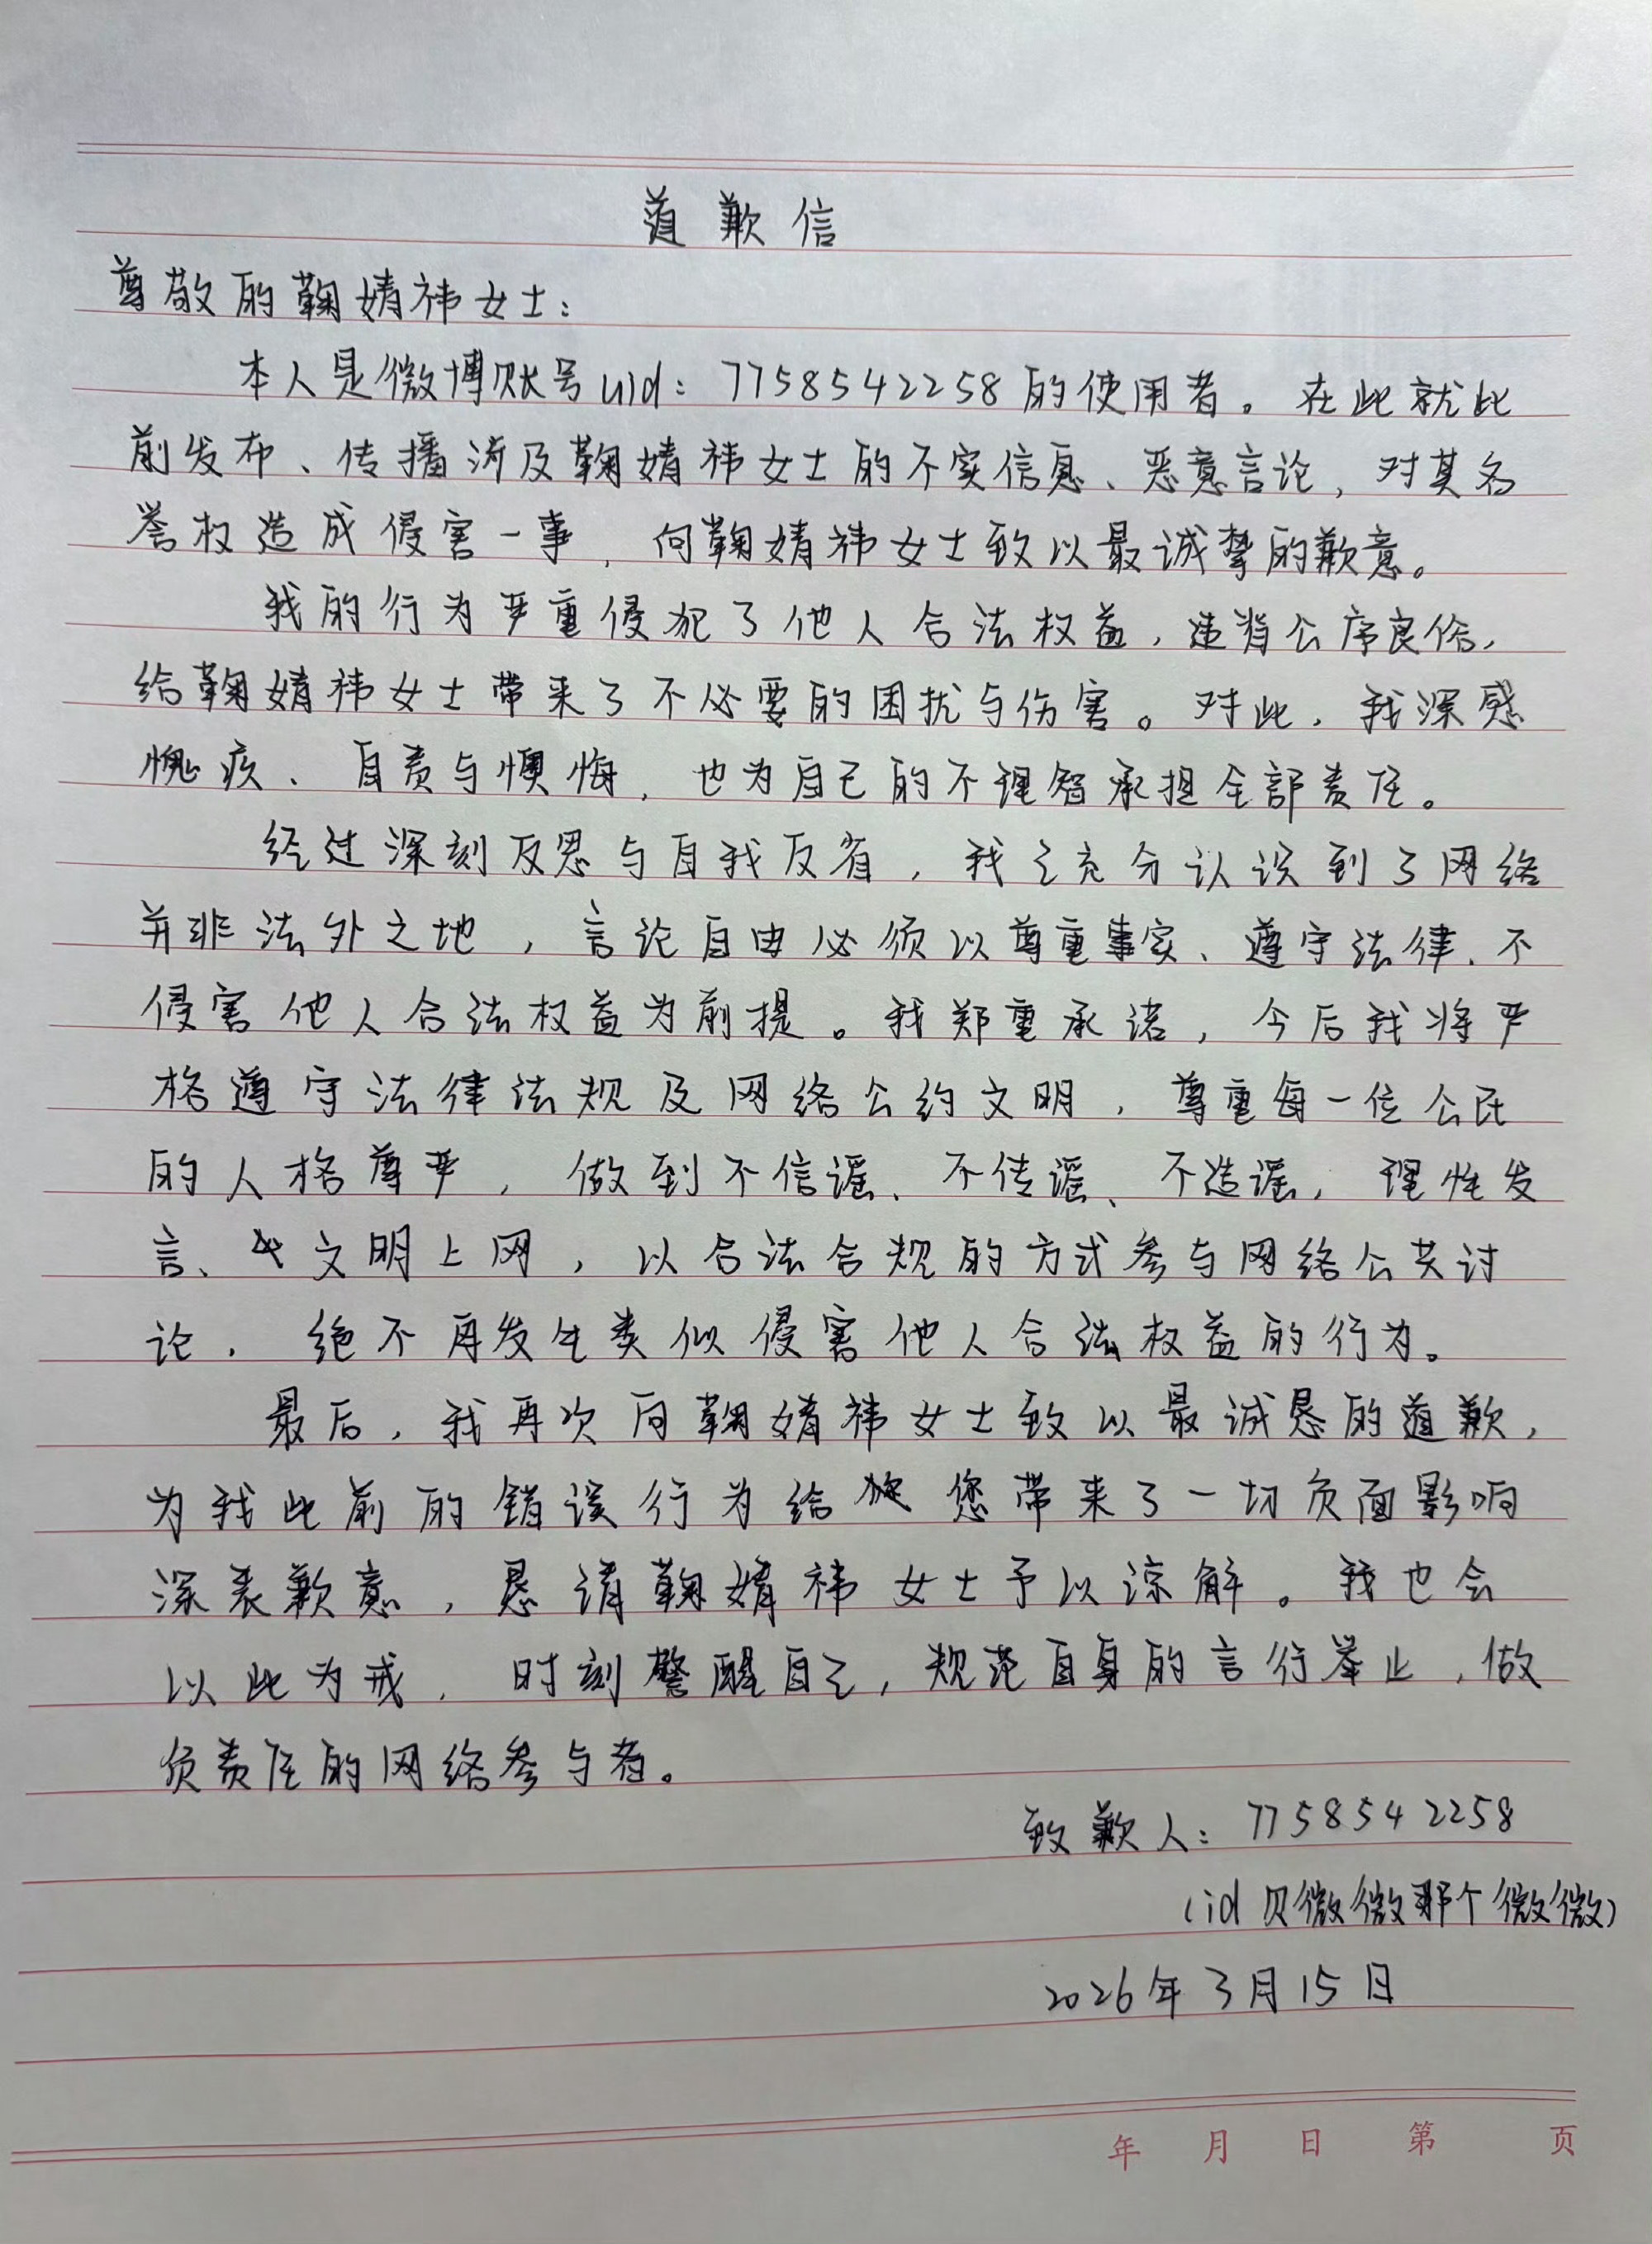 道歉信
尊敬的鞠婧祎女士：
本人是微博账号uid：7758542258的使用者。在此就此
前发布、传播涉及鞠婧祎女士的不实信息、恶意言论，对其名
誉权造成侵害一事，向鞠婧祎女士致以最诚挚的歉意。
我的行为严重侵犯了他人合法权益，违背公序良俗，
给鞠婧祎女士带来了不必要的困扰与伤害。对此，我深感
愧疚、自责与懊悔，也为自己的不理智承担全部责任。
经过深刻反思与自我反省，我已充分认识到了网络
并非法外之地，言论自由必须以尊重事实、遵守法律、不
侵害他人合法权益为前提。我郑重承诺，今后我将严
格遵守法律法规及网络公约文明，尊重每一位公民
的人格尊严，做到不信谣、不传谣、不造谣，理性发
言、文明上网，以合法合规的方式参与网络公共讨
论，绝不再发生类似侵害他人合法权益的行为。
最后，我再次向鞠婧祎女士致以最诚恳的道歉，
为我此前的错误行为给您带来了一切负面影响
深表歉意，恳请鞠婧祎女士予以谅解。我也会
以此为戒，时刻警醒自己，规范自身的言行举止，做
负责任的网络参与者。
致歉人：7758542258
（id 贝微微那个微微）
2026年3月15日
年 月 日 第 页